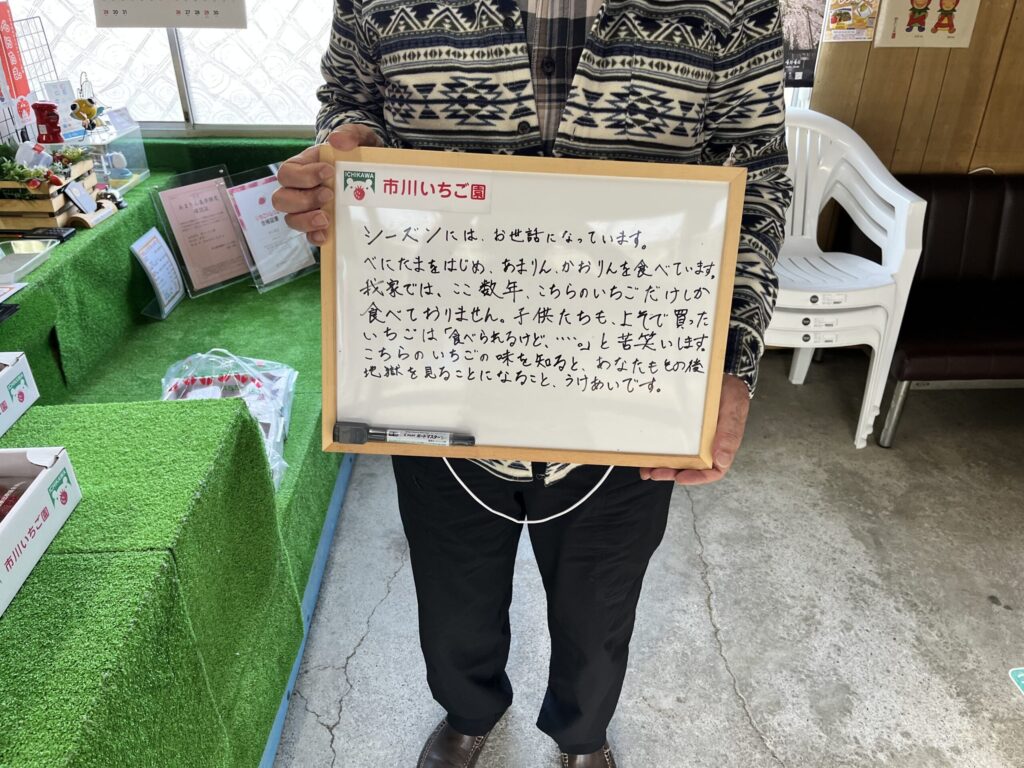 ICHIKAWA
市川いちご園
シーズンには、お世話になっています。
べにたまをはじめ、あまりん、かおりんを食べています。
我家では、ここ数年、こちらのいちごだけしか
食べておりません。子供たちも、よそで買った
いちごは「食べられるけど、‥‥。」と苦笑いします。
こちらのいちごの味を知ると、あなたもその後
地獄を見ることになること、うけあいです。
ボードマスター
市川いちご園